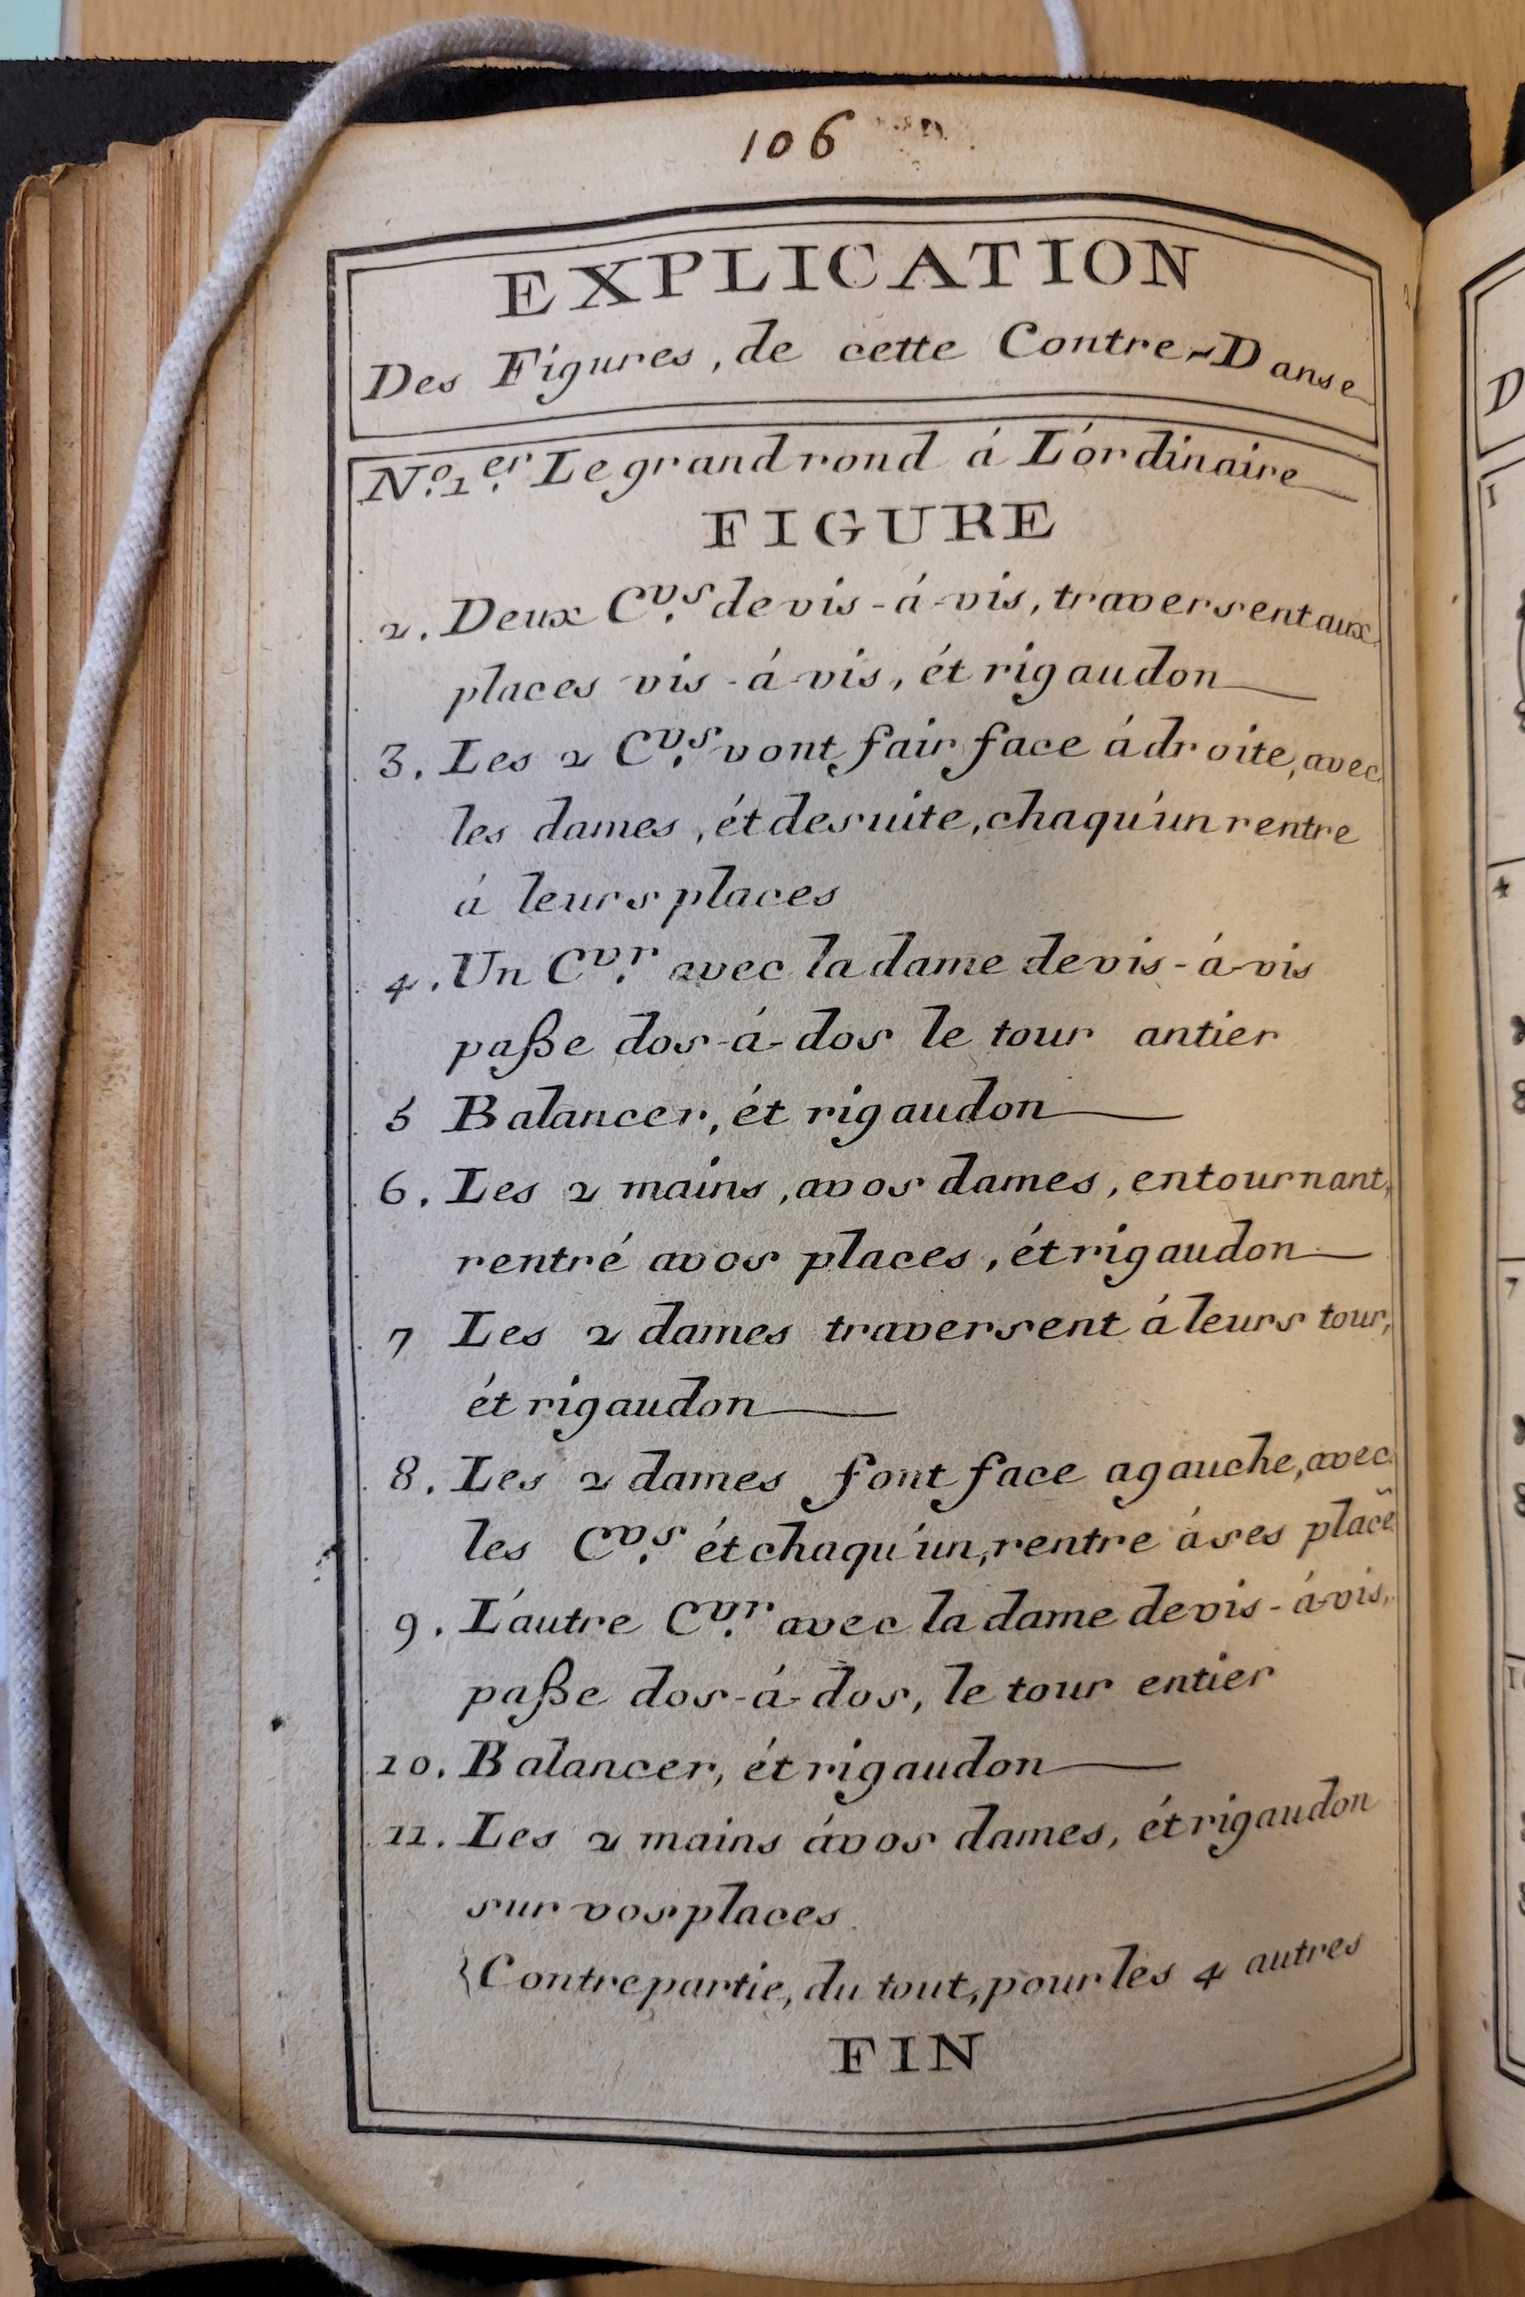 106
EXPLICATION
Des Figures, de cette Contre-Danse
N.º 1.er Le grand rond á L'ordinaire
FIGURE
2. Deux C.vs de vis-á-vis, traversent aux
places vis-á-vis, ét rigaudon
3. Les 2 C.vs vont fair face á droite, avec
les dames, ét desuite, chaqu'un rentre
á leurs places
4. Un C.vr avec la dame de vis-á-vis
paße dos-á-dos le tour antier
5 Balancer, ét rigaudon
6. Les 2 mains, avos dames, entournant,
rentré avos places, ét rigaudon
7 Les 2 dames traversent á leurs tour,
ét rigaudon
8. Les 2 dames font face agauche, avec
les C.vs ét chaqu'un, rentre á ses place͂
9. L'autre C.vr avec la dame de vis-á-vis,
paße dos-á-dos, le tour entier
10. Balancer, ét rigaudon
11. Les 2 mains ávos dames, ét rigaudon
sur vos places
{Contrepartie, du tout, pour les 4 autres
FIN
D
1
4
7